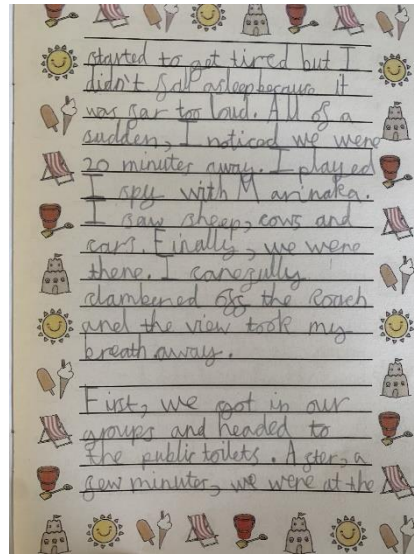 started to get tired but I
didn't fall asleep because it
was far too loud. All of a
sudden, I noticed we were
20 minutes away. I played
I spy with Marinaka.
I saw sheep, cows and
cars. Finally, we were
there. I carefully
clambered off the coach
and the view took my
breath away.
First, we got in our
groups and headed to
the public toilets. After, a
few minutes, we were at the